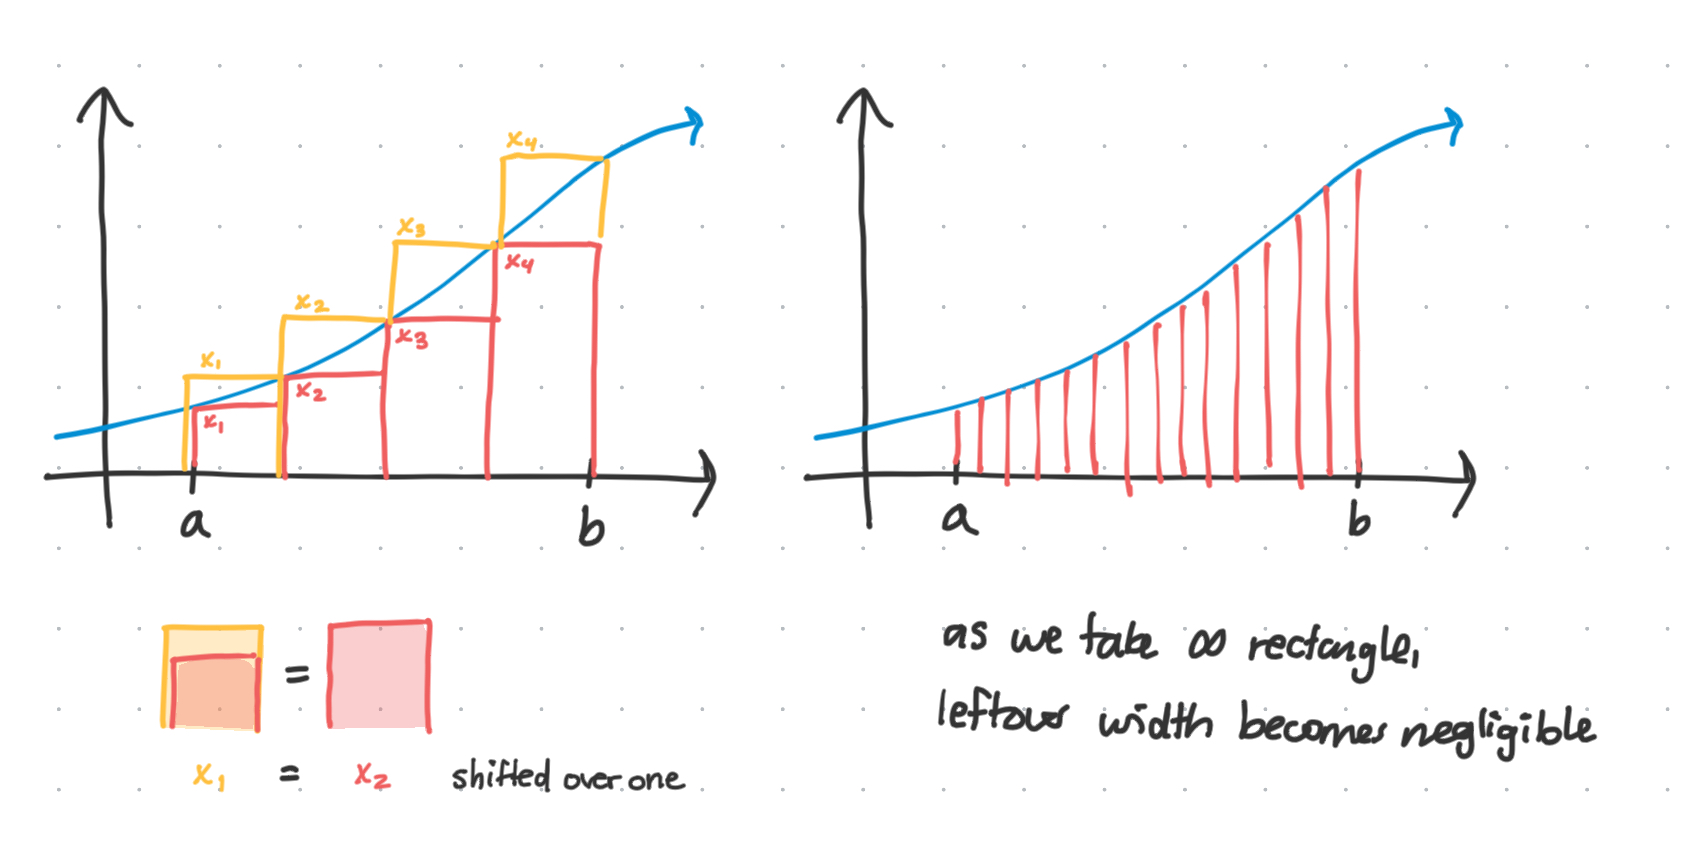 x₄
x₃
x₄
x₂
x₃
x₁
x₂
x₁
a
b
a
b
=
x₁ = x₂ shifted over one
as we take ∞ rectangle,
leftover width becomes negligible